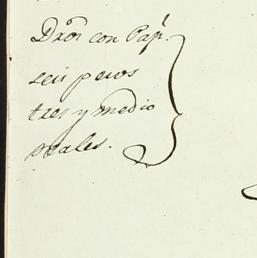 Dros con Papl.
seis pesos
tres y medio
reales.